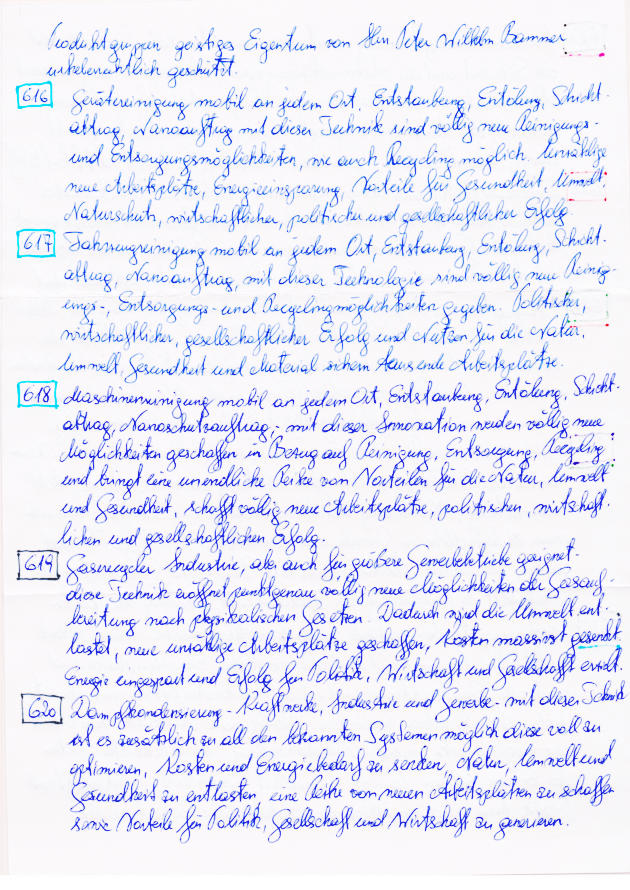 Produktgruppen geistiges Eigentum von Hrn Peter Wilhelm Bammer
urheberrechtlich geschützt.
616 Gerätereinigung mobil an jedem Ort, Entstaubung, Entölung, Schicht-
abtrag, Nanoauftrag mit dieser Technik sind völlig neue Reinigungs-
und Entsorgungsmöglichkeiten, wie auch Recycling möglich. Unzählige
neue Arbeitsplätze, Energieeinsparung, Vorteile für Gesundheit, Umwelt,
Naturschutz, wirtschaftlicher, politischer und gesellschaftlicher Erfolg
617 Fahrzeugreinigung mobil an jedem Ort, Entstaubung, Entölung, Schicht-
abtrag, Nanoauftrag, mit dieser Technologie sind völlig neue Reinig-
ungs-, Entsorgungs- und Recyclingmöglichkeiten gegeben. Politischer,
wirtschaftlicher, gesellschaftlicher Erfolg und Nutzen für die Natur,
Umwelt, Gesundheit und Material sichern tausende Arbeitsplätze.
618 Maschinenreinigung mobil an jedem Ort, Entstaubung, Entölung, Schicht-
abtrag, Nanoschutzauftrag,- mit dieser Innovation werden völlig neue
Möglichkeiten geschaffen in Bezug auf Reinigung, Entsorgung, Recycling
und bringt eine unendliche Reihe von Vorteilen für die Natur, Umwelt
und Gesundheit, schafft völlig neue Arbeitsplätze, politischen, wirtschaft-
lichen und gesellschaftlichen Erfolg.
619 Gasrecycler Industrie, aber auch für größere Gewerbebetriebe geeignet-
diese Technik eröffnet punktgenau völlig neue Möglichkeiten der Gasauf-
bereitung nach physikalischen Gesetzen. Dadurch wird die Umwelt ent-
lastet, neue unzählige Arbeitsplätze geschaffen, Kosten massivst gesenkt,
Energie eingespart und Erfolg für Politik, Wirtschaft und Gesellschaft erzielt.
620 Dampfkondensierung - Kraftwerke, Industrie und Gewerbe - mit dieser Technik
ist es zusätzlich zu all den bekannten Systemen möglich diese voll zu
optimieren, Kosten und Energiebedarf zu senken, Natur, Umwelt und
Gesundheit zu entlasten, eine Reihe von neuen Arbeitsplätzen zu schaffen
sowie Vorteile für Politik, Gesellschaft und Wirtschaft zu generieren.